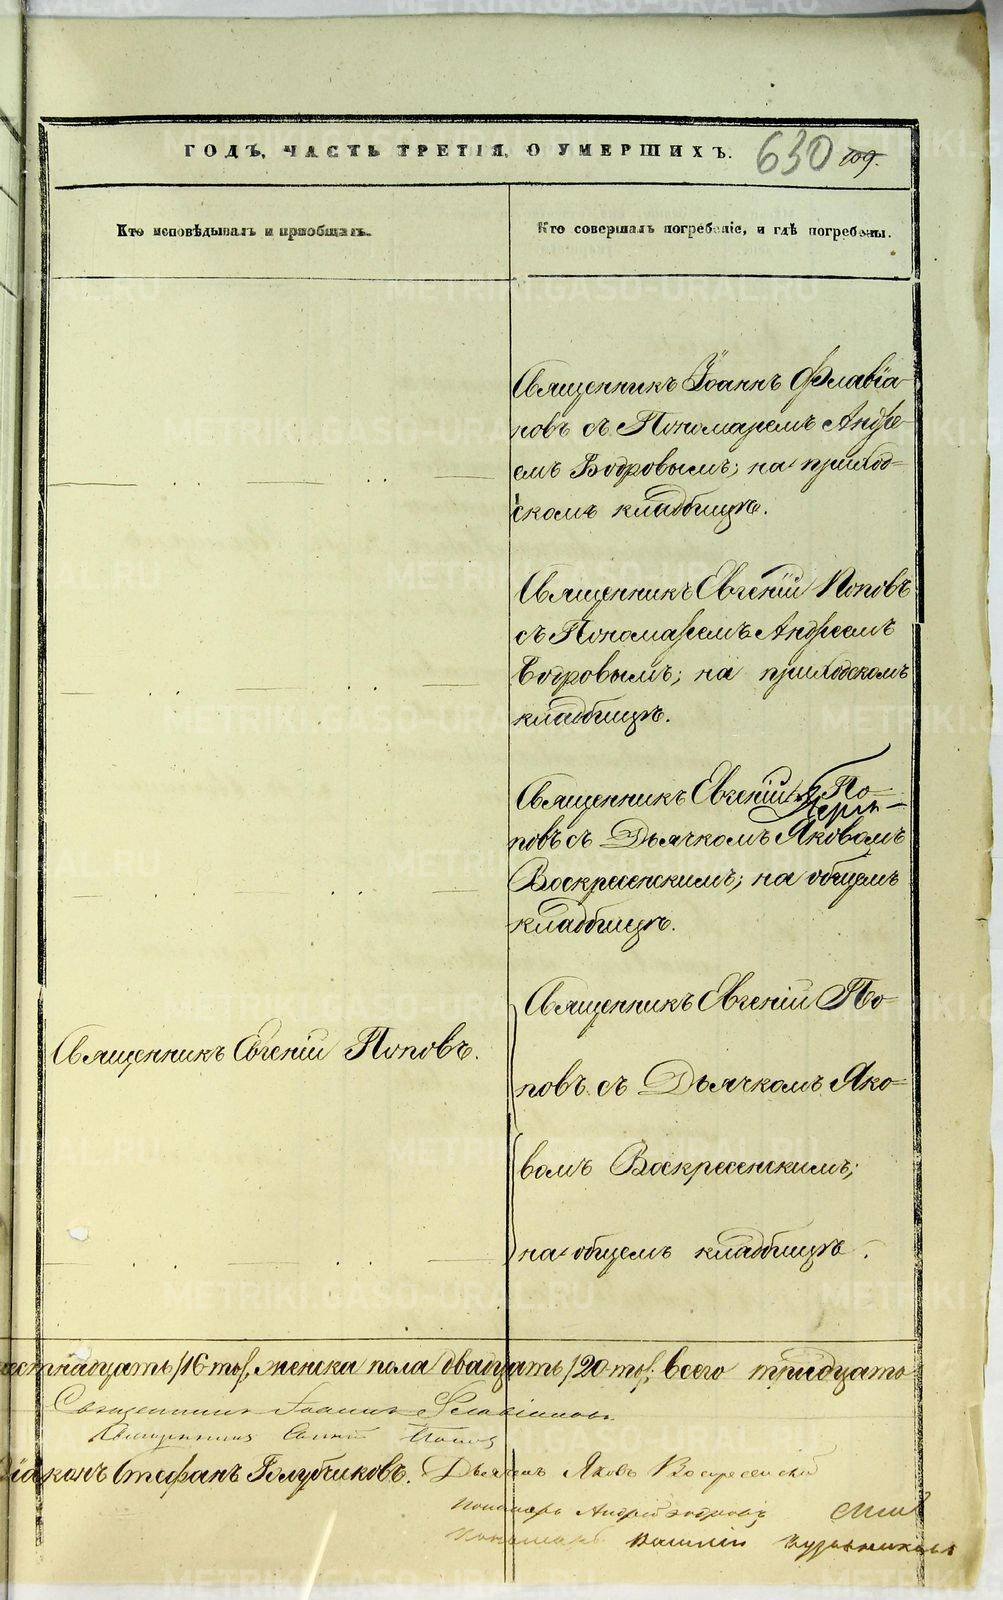 ГОДЪ, ЧАСТЬ ТРЕТІЯ, О УМЕРШИХЪ. 630 109.
Кто исповѣдывалъ и пріобщалъ.
Кто совершалъ погребеніе, и гдѣ погребены.
Священникъ Іоаннъ Флавіа-
новъ съ Пономаремъ Андре-
емъ Бодровымъ; на приход-
скомъ кладбищѣ.
Священникъ Евгеній Поповъ
съ Пономаремъ Андреемъ
Бодровымъ; на приходскомъ
кладбищѣ.
Священникъ Евгеній По-
повъ съ Дьячкомъ Яковомъ
Воскресенскимъ; на общемъ
кладбищѣ.
Священникъ Евгеній Поповъ.
Священникъ Евгеній По-
повъ съ Дьячкомъ Яко-
вомъ Воскресенскимъ;
на общемъ кладбищѣ.
естнадцать /16-ть/, женска пола двадцать /20-ть/, всего тридцать
Священникъ Іоаннъ Флавіановъ
Священникъ Поповъ
Діаконъ Стефанъ Голубчиковъ. Дьячекъ Яковъ Воскресенскій
Пономарь Андрей Бодровъ
Пономарь Василій
METRIKI.GASO-URAL.RU